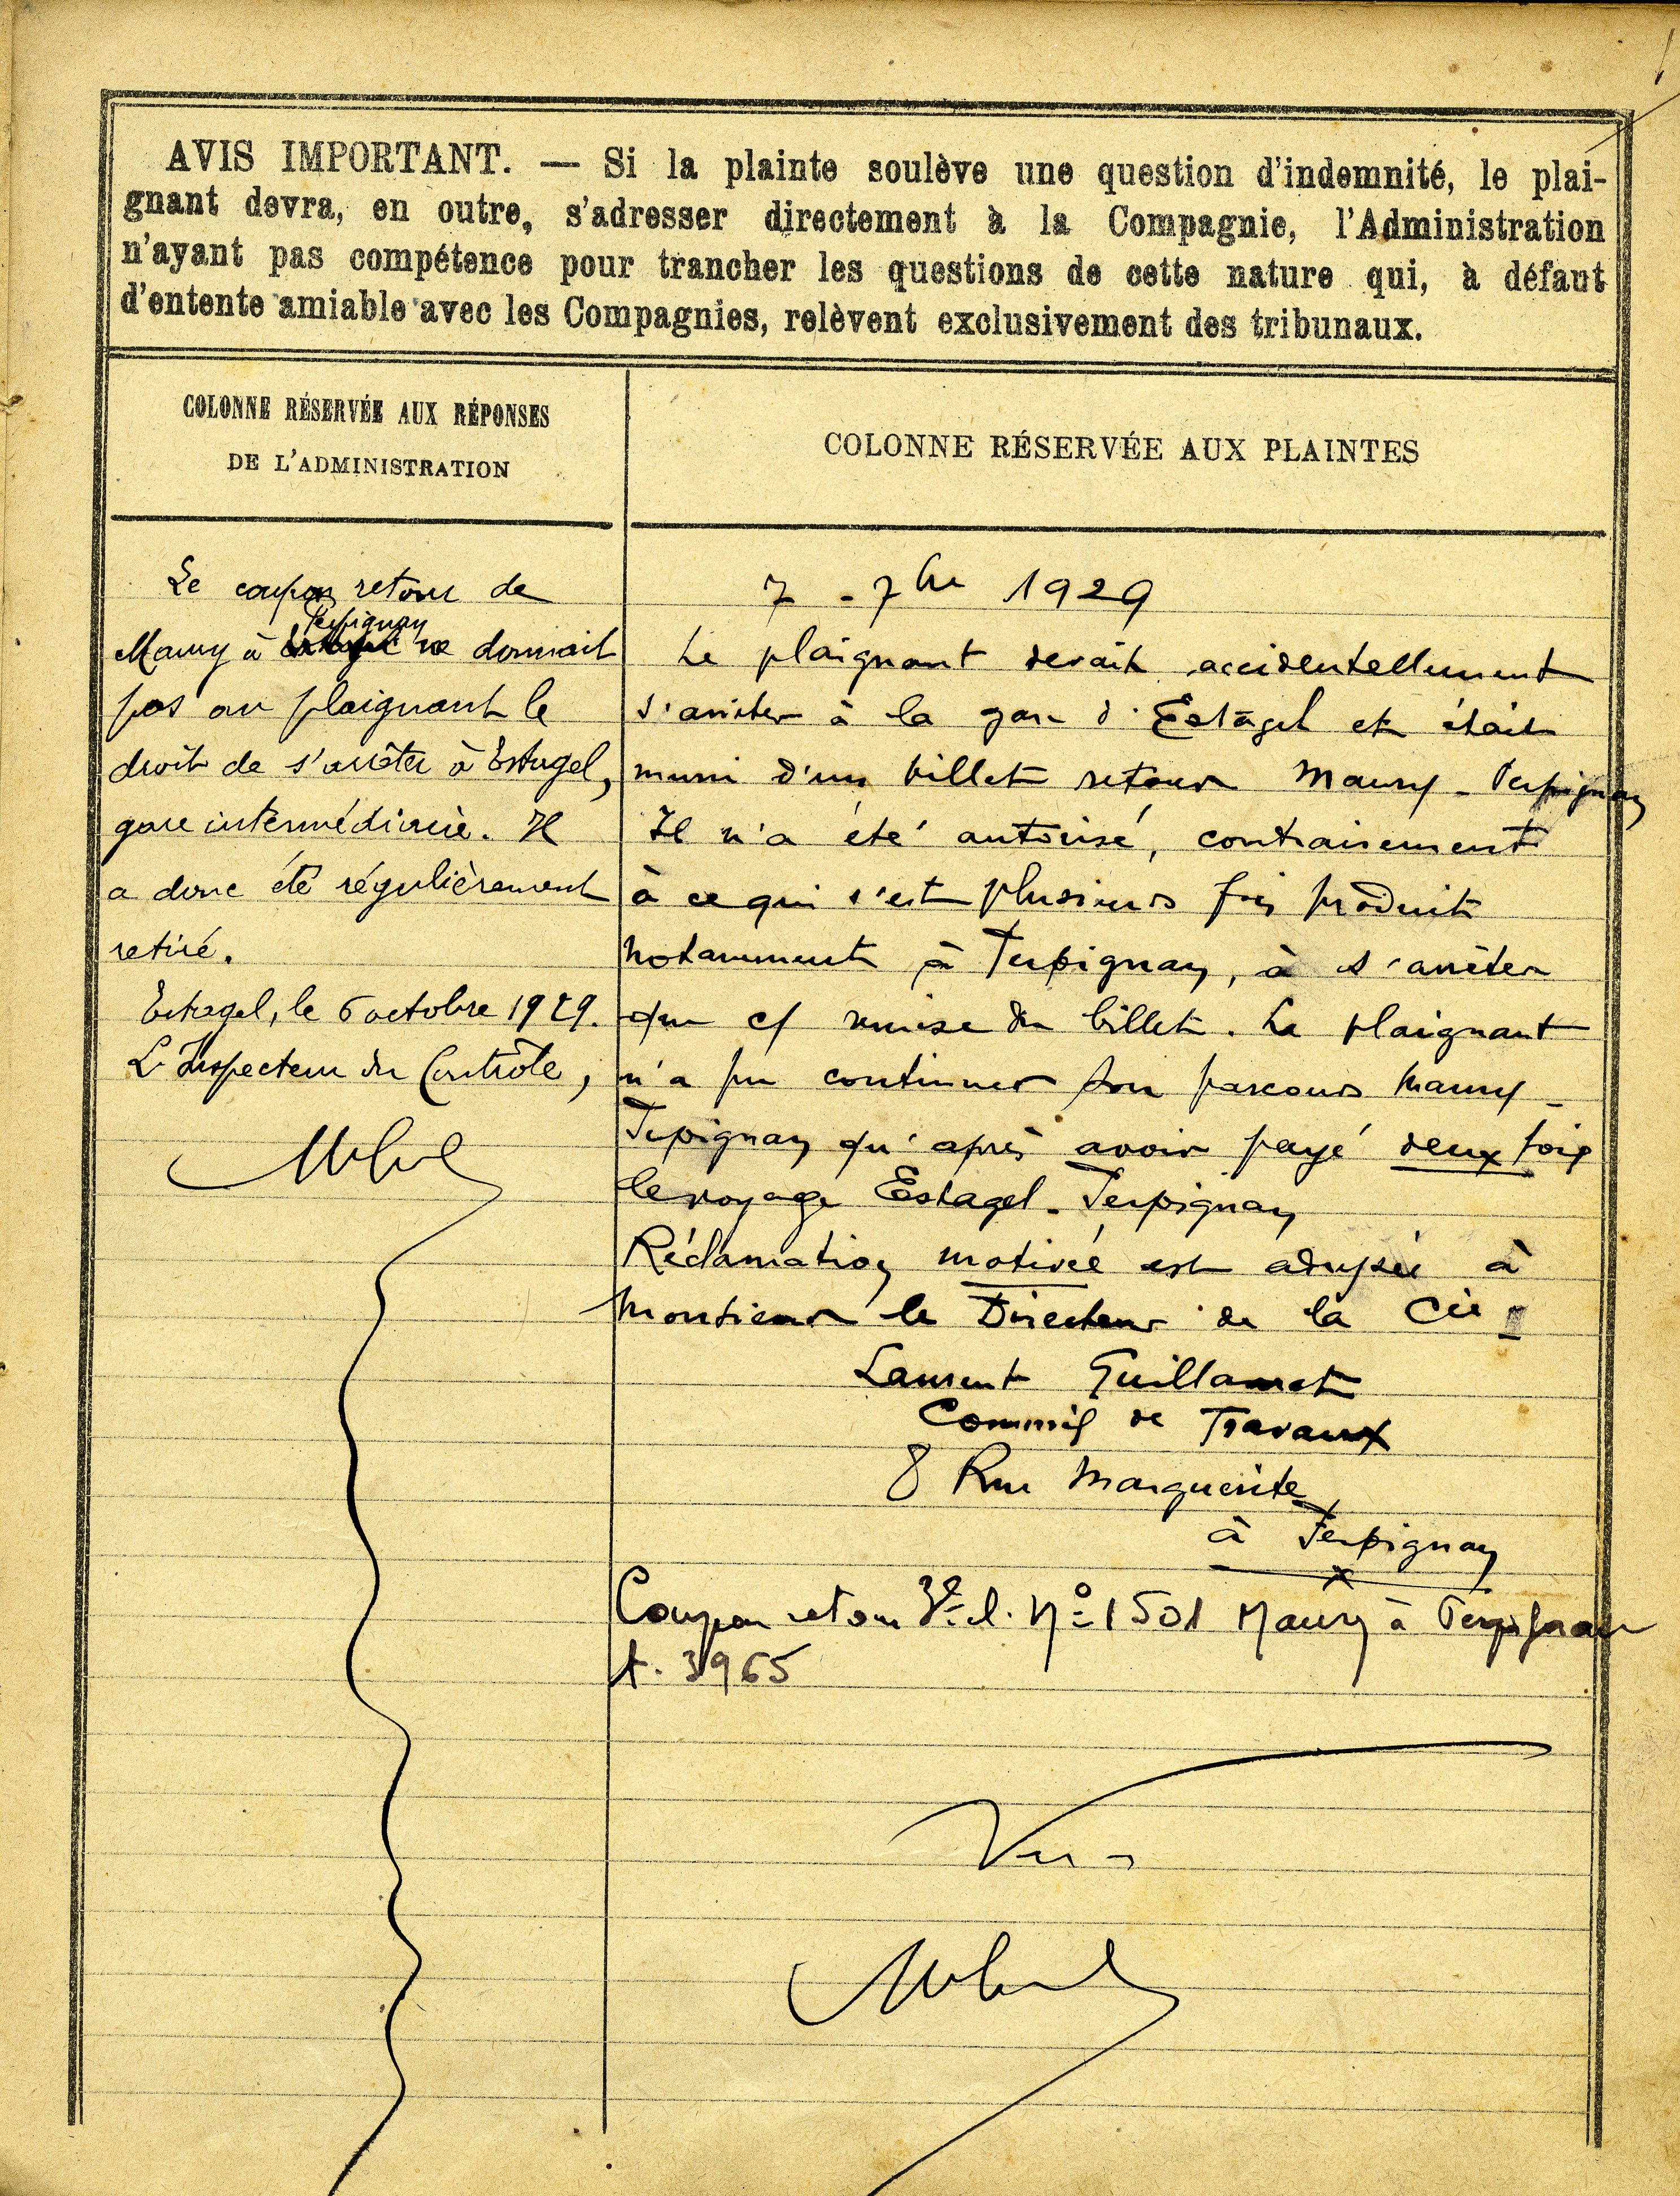 AVIS IMPORTANT. — Si la plainte soulève une question d'indemnité, le plai-
gnant devra, en outre, s'adresser directement à la Compagnie, l'Administration
n'ayant pas compétence pour trancher les questions de cette nature qui, à défaut
d'entente amiable avec les Compagnies, relèvent exclusivement des tribunaux.
COLONNE RÉSERVÉE AUX RÉPONSES
DE L'ADMINISTRATION
Le coupon retour de
Perpignan
Maury à ne donnait
pas au plaignant le
droit de s'arrêter à Estagel,
gare intermédiaire. Il
a donc été régulièrement
retiré.
Estagel, le 6 octobre 1929.
L'Inspecteur du Contrôle,
COLONNE RÉSERVÉE AUX PLAINTES
7 - 7bre 1929
Le plaignant devait accidentellement
s'arrêter à la gare d'Estagel et était
muni d'un billet retour Maury - Perpignan
Il n'a été autorisé, contrairement
à ce qui s'est plusieurs fois produit
notamment à Perpignan, à s'arrêter
que c/ remise du billet. Le plaignant
n'a pu continuer son parcours Maury -
Perpignan qu'après avoir payé deux fois
le voyage Estagel - Perpignan
Réclamation motivée est adressée à
Monsieur le Directeur de la Cie
Laurent Guillamet
Commis de Travaux
8 Rue Marguerite
à Perpignan
Coupon retour 3e cl. No 1501 Maury à Perpignan
t. 3965
Vu